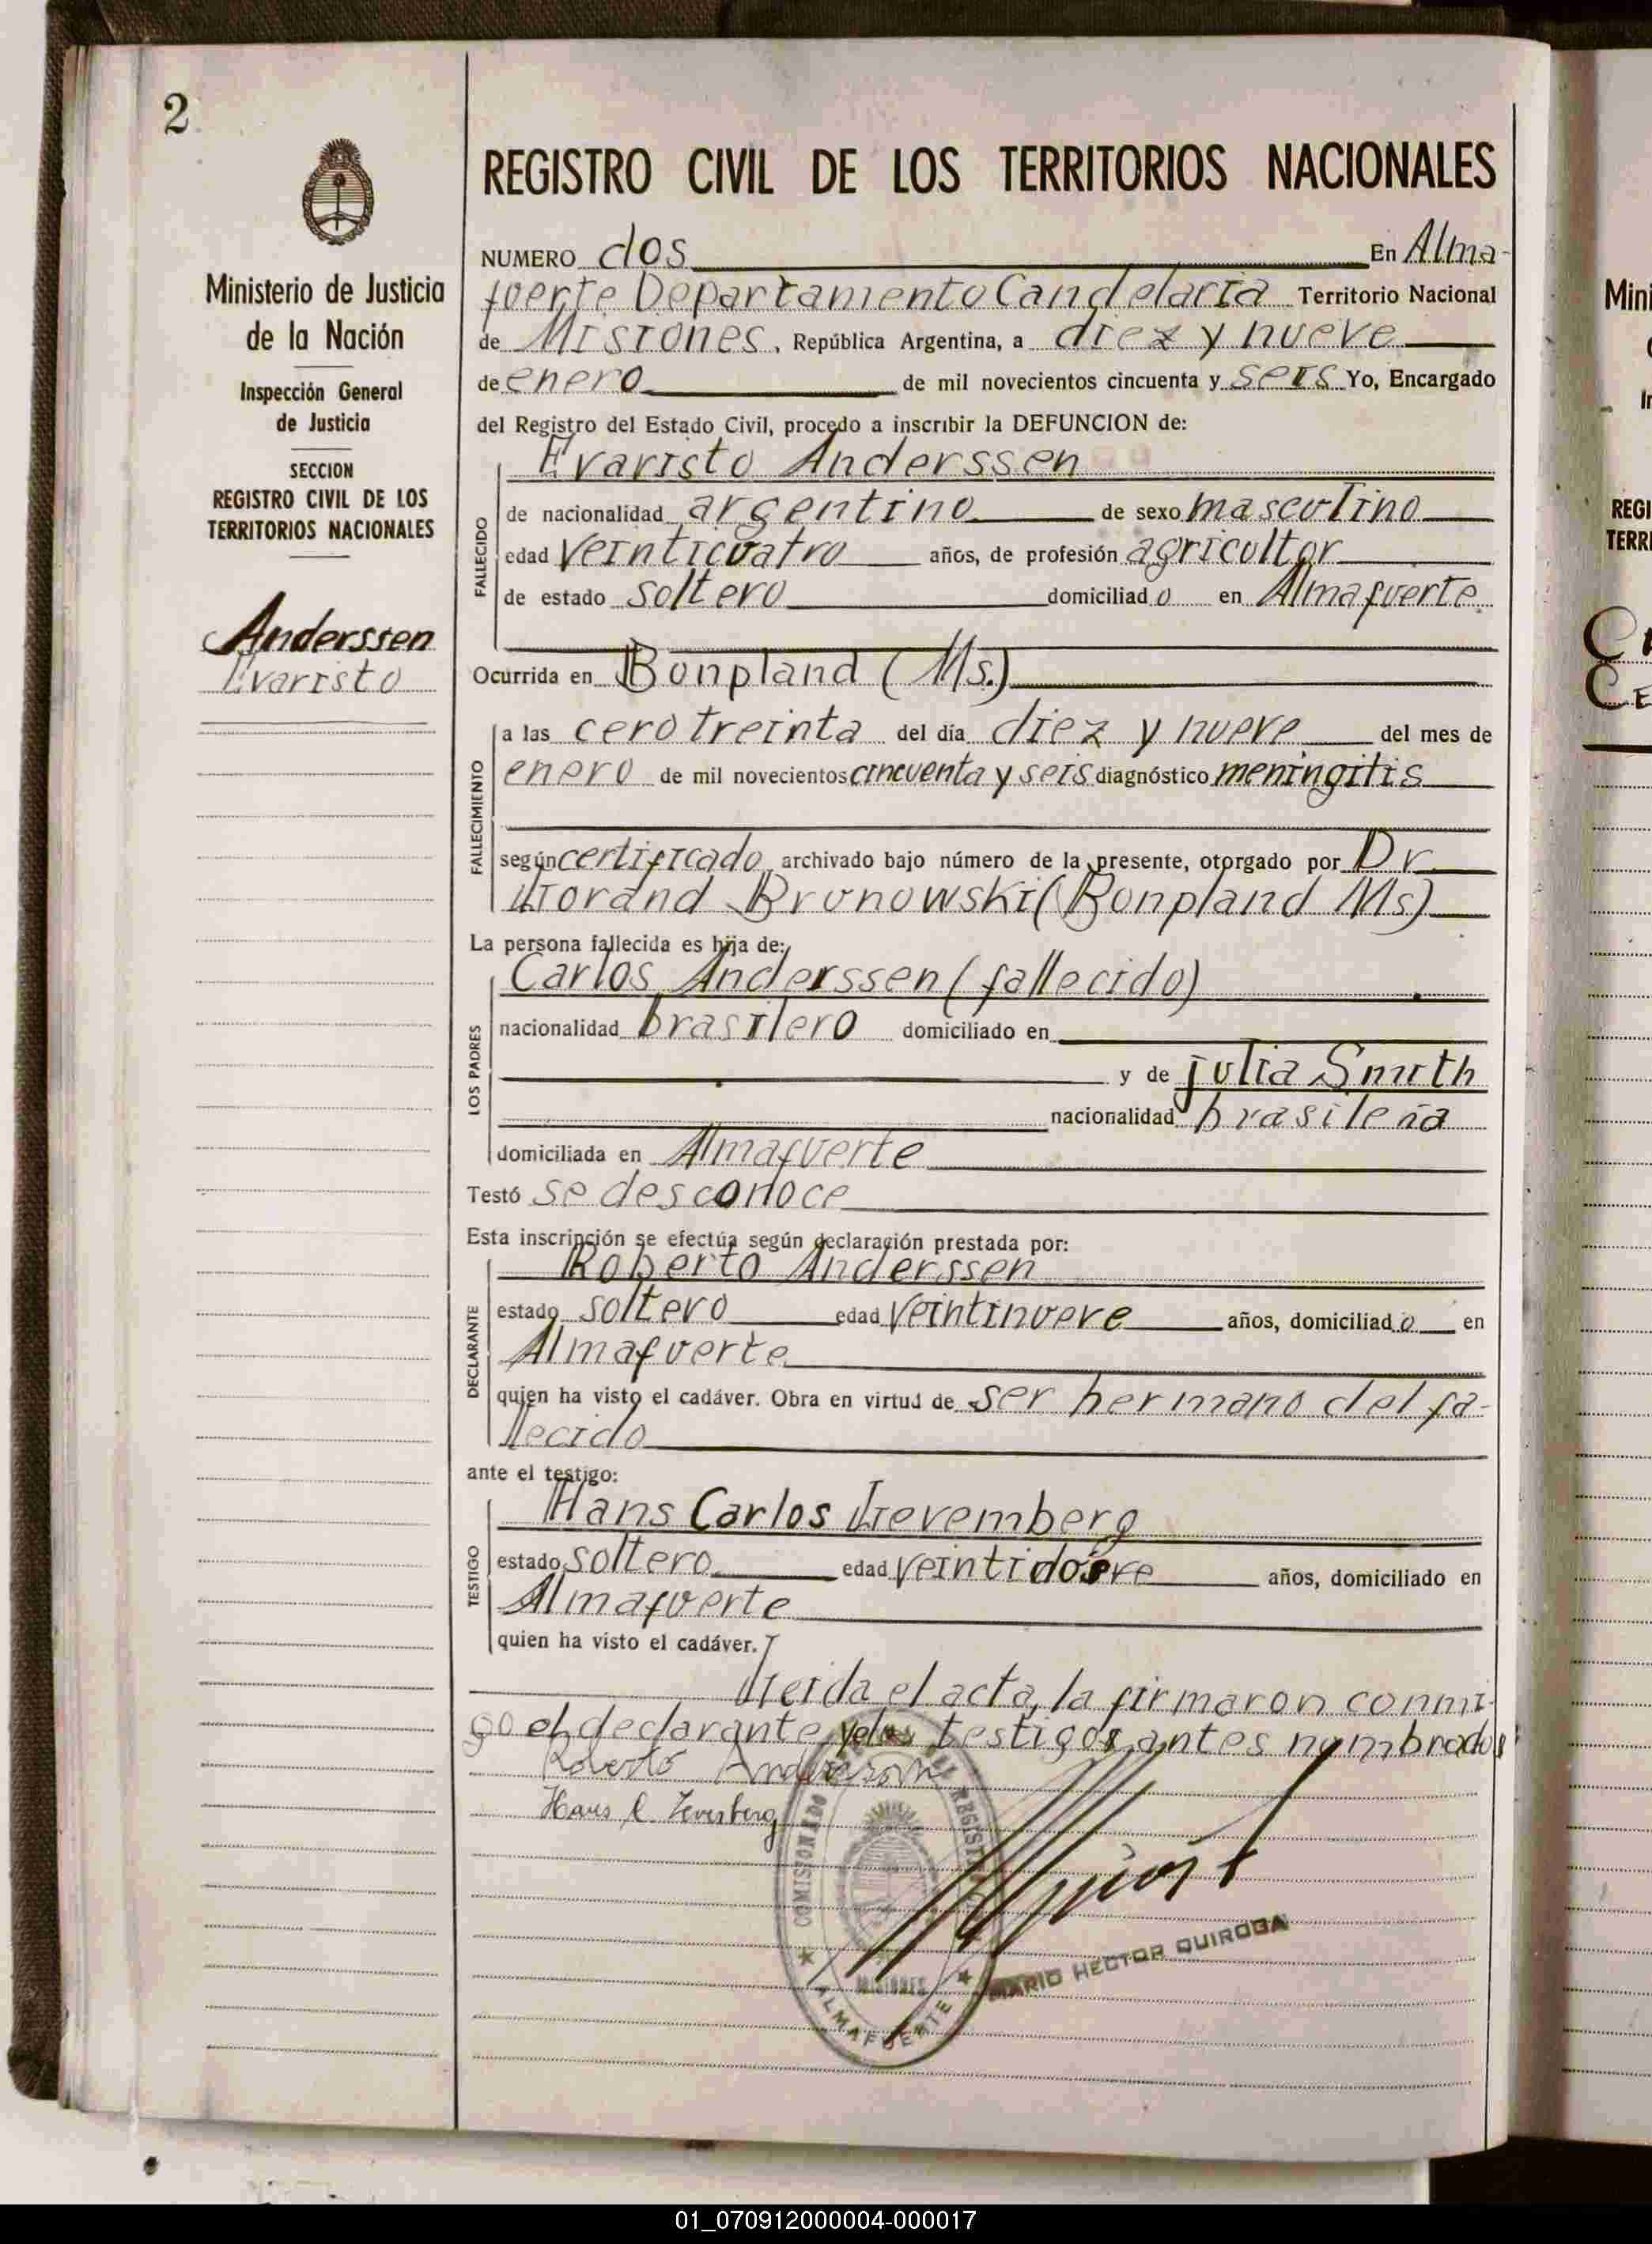 2
Ministerio de Justicia
de la Nación
Inspección General
de Justicia
SECCION
REGISTRO CIVIL DE LOS
TERRITORIOS NACIONALES
Anderssen
Evaristo
REGISTRO CIVIL DE LOS TERRITORIOS NACIONALES
NUMERO dos En Alma-
fuerte Departamento Candelaria Territorio Nacional
de Misiones, República Argentina, a diez y nueve
de enero de mil novecientos cincuenta y seis Yo, Encargado
del Registro del Estado Civil, procedo a inscribir la DEFUNCION de:
Evaristo Anderssen
FALLECIDO
de nacionalidad argentino de sexo masculino
edad veinticuatro años, de profesión agricultor
de estado soltero domiciliado en Almafuerte
Ocurrida en Bonpland (Ms.)
FALLECIMIENTO
a las cero treinta del día diez y nueve del mes de
enero de mil novecientos cincuenta y seis diagnóstico meningitis
según certificado archivado bajo número de la presente, otorgado por Dr.
Brunowski (Bonpland Ms)
La persona fallecida es hija de:
Carlos Anderssen (fallecido)
LOS PADRES
nacionalidad brasilero domiciliado en
y de julia Smith
nacionalidad brasileña
domiciliada en Almafuerte
Testó se desconoce
Esta inscripción se efectúa según declaración prestada por:
Roberto Anderssen
DECLARANTE
estado soltero edad veintinueve años, domiciliado en
Almafuerte
quien ha visto el cadáver. Obra en virtud de ser hermano del fa-
llecido
ante el testigo:
Hans Carlos Levemberg
TESTIGO
estado soltero edad veintidos años, domiciliado en
Almafuerte
quien ha visto el cadáver.
Leida el acta, la firmaron conmi-
go el declarante y el testigo antes nombrados
Roberto
Hans C.
COMISIONADO REGISTRO
MISIONES
ALMAFUERTE
MARIO HECTOR QUIROGA
Mini
REGI
TERRI
01_070912000004-000017